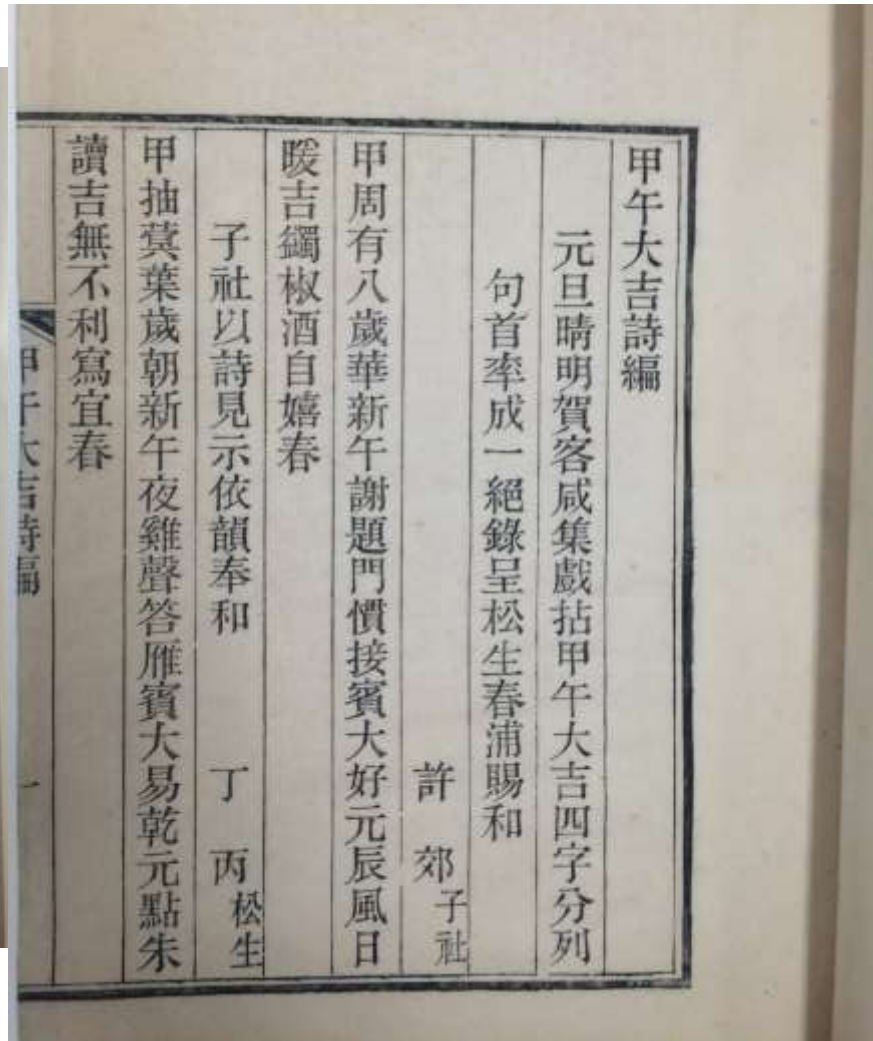 甲午大吉詩編
元旦晴明賀客咸集戲拈甲午大吉四字分列
句首率成一絕錄呈松生春浦賜和
許郊子社
甲周有八歲華新午謝題門慣接賓大好元辰風日
暖吉蠲椒酒自嬉春
子社以詩見示依韻奉和 丁丙松生
甲抽蓂葉歲朝新午夜雞聲答雁賓大易乾元點朱
讀吉無不利寫宜春
甲午大吉詩編 一